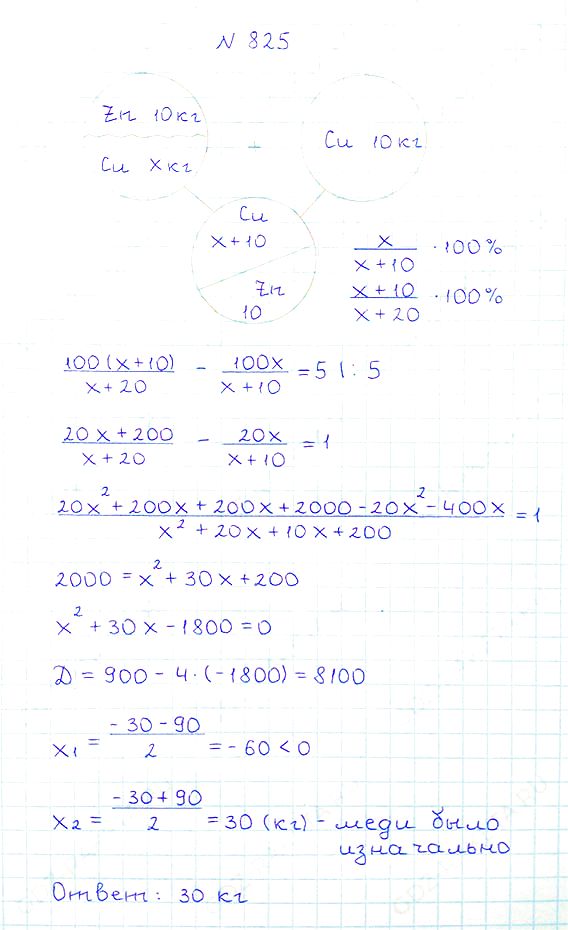 N 825
Zn 10кг
Cu xкг
+
Cu 10кг
Cu
x+10
Zn
10
x/(x+10) · 100%
(x+10)/(x+20) · 100%
100(x+10)/(x+20) - 100x/(x+10) = 5 |: 5
(20x+200)/(x+20) - 20x/(x+10) = 1
(20x²+200x+200x+2000-20x²-400x)/(x²+20x+10x+200) = 1
2000 = x²+30x+200
x²+30x-1800=0
Д = 900 - 4·(-1800) = 8100
x₁ = (-30-90)/2 = -60 < 0
x₂ = (-30+90)/2 = 30 (кг) - меди было
изначально
Ответ: 30 кг